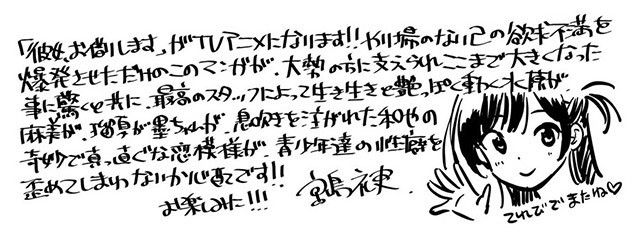 「彼女、お借りします」がTVアニメになります!!やり場のない己の欲求不満を
爆発させただけのこのマンガが、大勢の方に支えられここまで大きくなった
事に驚くと共に、最高のスタッフによって生き生きと艶っぽく動く水原が
麻美が、瑠夏が墨ちゃんが、息吹きを注がれた和也の
奇妙で真っ直ぐな恋模様が、青少年達の性癖を
歪めてしまわないか心配です!!
お楽しみに!!!
宮島礼吏
てれびでまたね♡